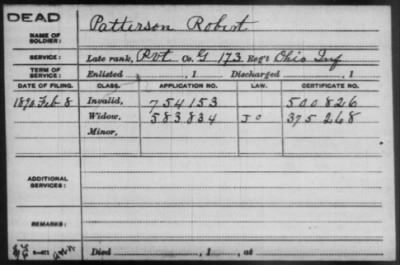 DEAD
NAME OF SOLDIER: Patterson Robert
SERVICE: Late rank, Pvt Co. G 173 Reg't Ohio Inf
TERM OF SERVICE: Enlisted , 1 Discharged , 1
DATE OF FILING. CLASS. APPLICATION NO. LAW. CERTIFICATE NO.
1890 Feb 8 Invalid, 754153 500826
Widow, 583834 375268
Minor,
ADDITIONAL SERVICES:
REMARKS:
Died , 1 , at